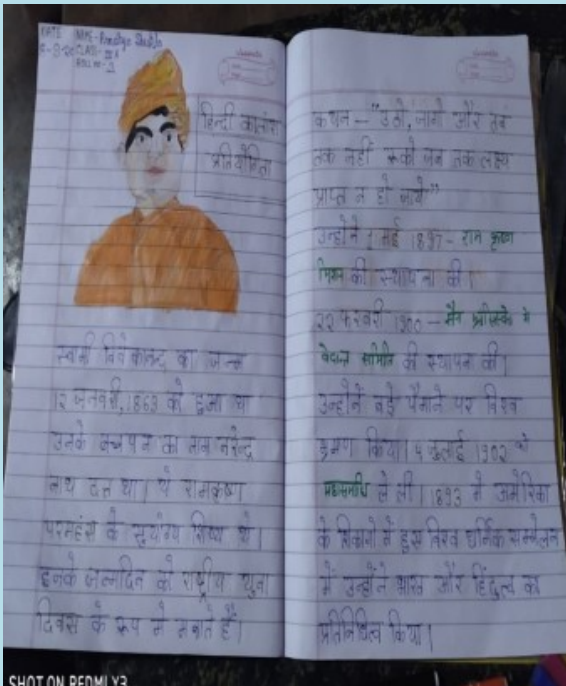 DATE
NAME-
CLASS-
ROLL NO-1
हिन्दी
प्रतियोगिता
स्वामी विवेकानन्द का जन्म
१२ जनवरी, 1863 को हुआ था
उनके बचपन का नाम नरेन्द्र
नाथ दत्त था। ये रामकृष्ण
परमहंस के सुयोग्य शिष्य थे।
इनके जन्मदिन को राष्ट्रीय युवा
दिवस के रूप में मनाते हैं।
कथन – "उठो, जागो और तब
तक नहीं रूको जब तक लक्ष्य
प्राप्त न हो जाये"
उन्होंने 1 मई 1897 – राम कृष्ण
मिशन की स्थापना की।
२२ फरवरी 1900 – सैन में
वेदान्त समिति की स्थापना की।
उन्होनें बड़े पैमाने पर विश्व
भ्रमण किया। 4 जुलाई 1902 को
महासमाधि ले ली। 1893 में अमेरिका
के शिकागो में हुए विश्व धर्मिक सम्मेलन
में उन्होंने भारत और हिंदुत्व का
प्रतिनिधित्व किया।
SHOT ON REDMI Y3